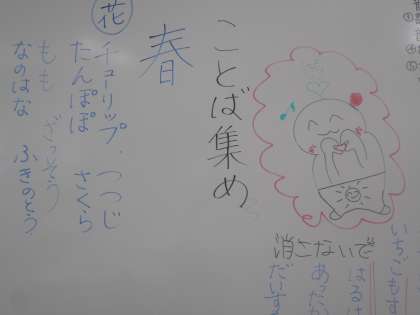 ③
④
⑤
いちごもす
消さないで
はるは
あったか
だいす
ことば集め
春
花
チューリップ、つつじ
たんぽぽ さくら
もも ざっそう
なのはな ふきのとう